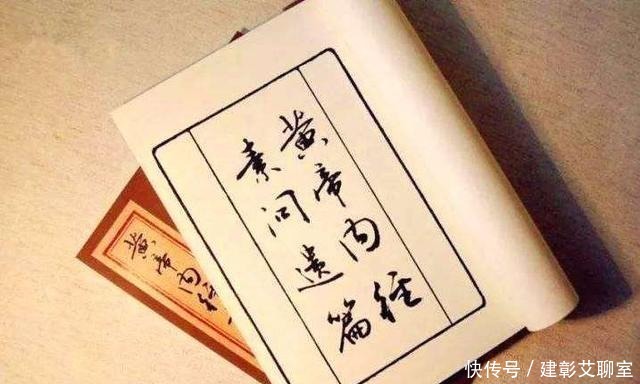 黄帝内经
素问遗篇
黄帝内经
快传号/建彰艾聊室